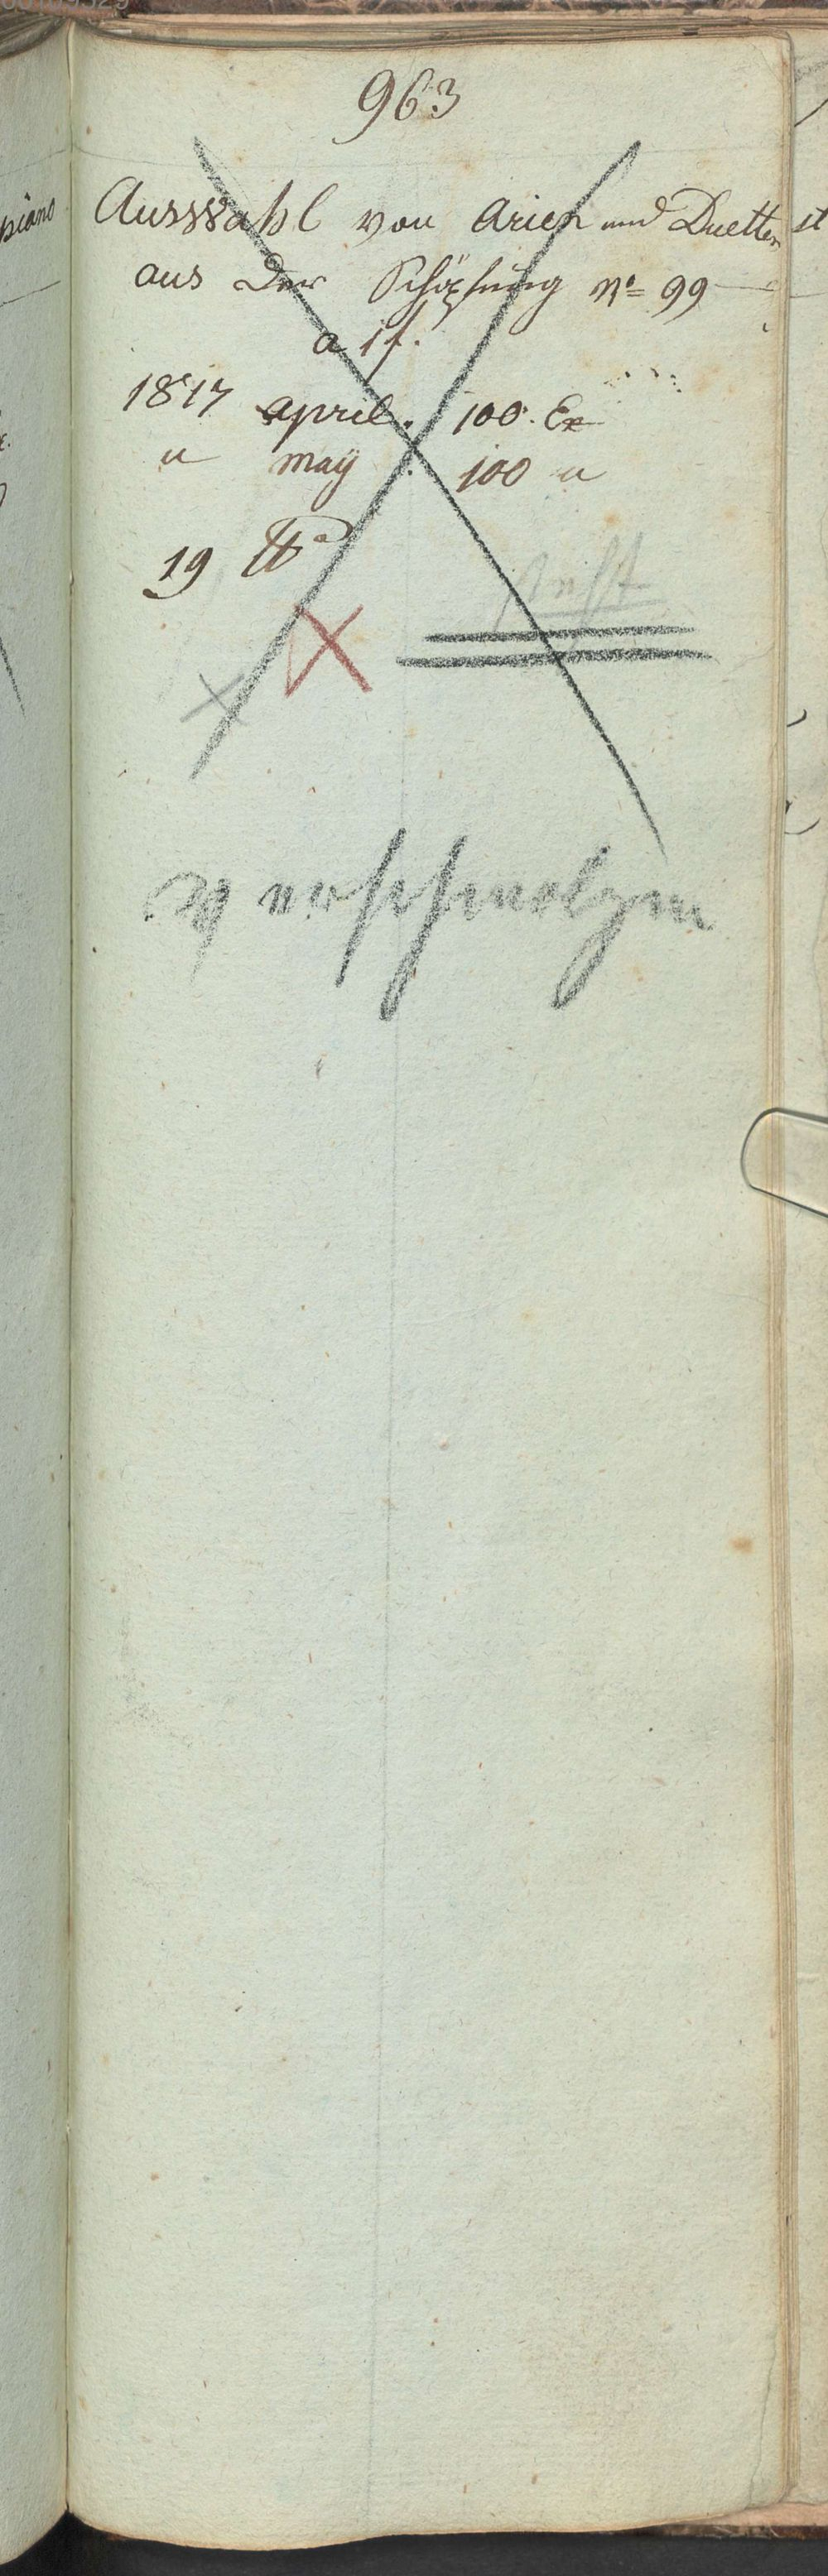 963
Auswahl von Arien und Duetten
aus Der Schöpfung No= 99
a 1f.
1817 april. 100. Ex
" may . 100 "
19
verschmolzen
piano